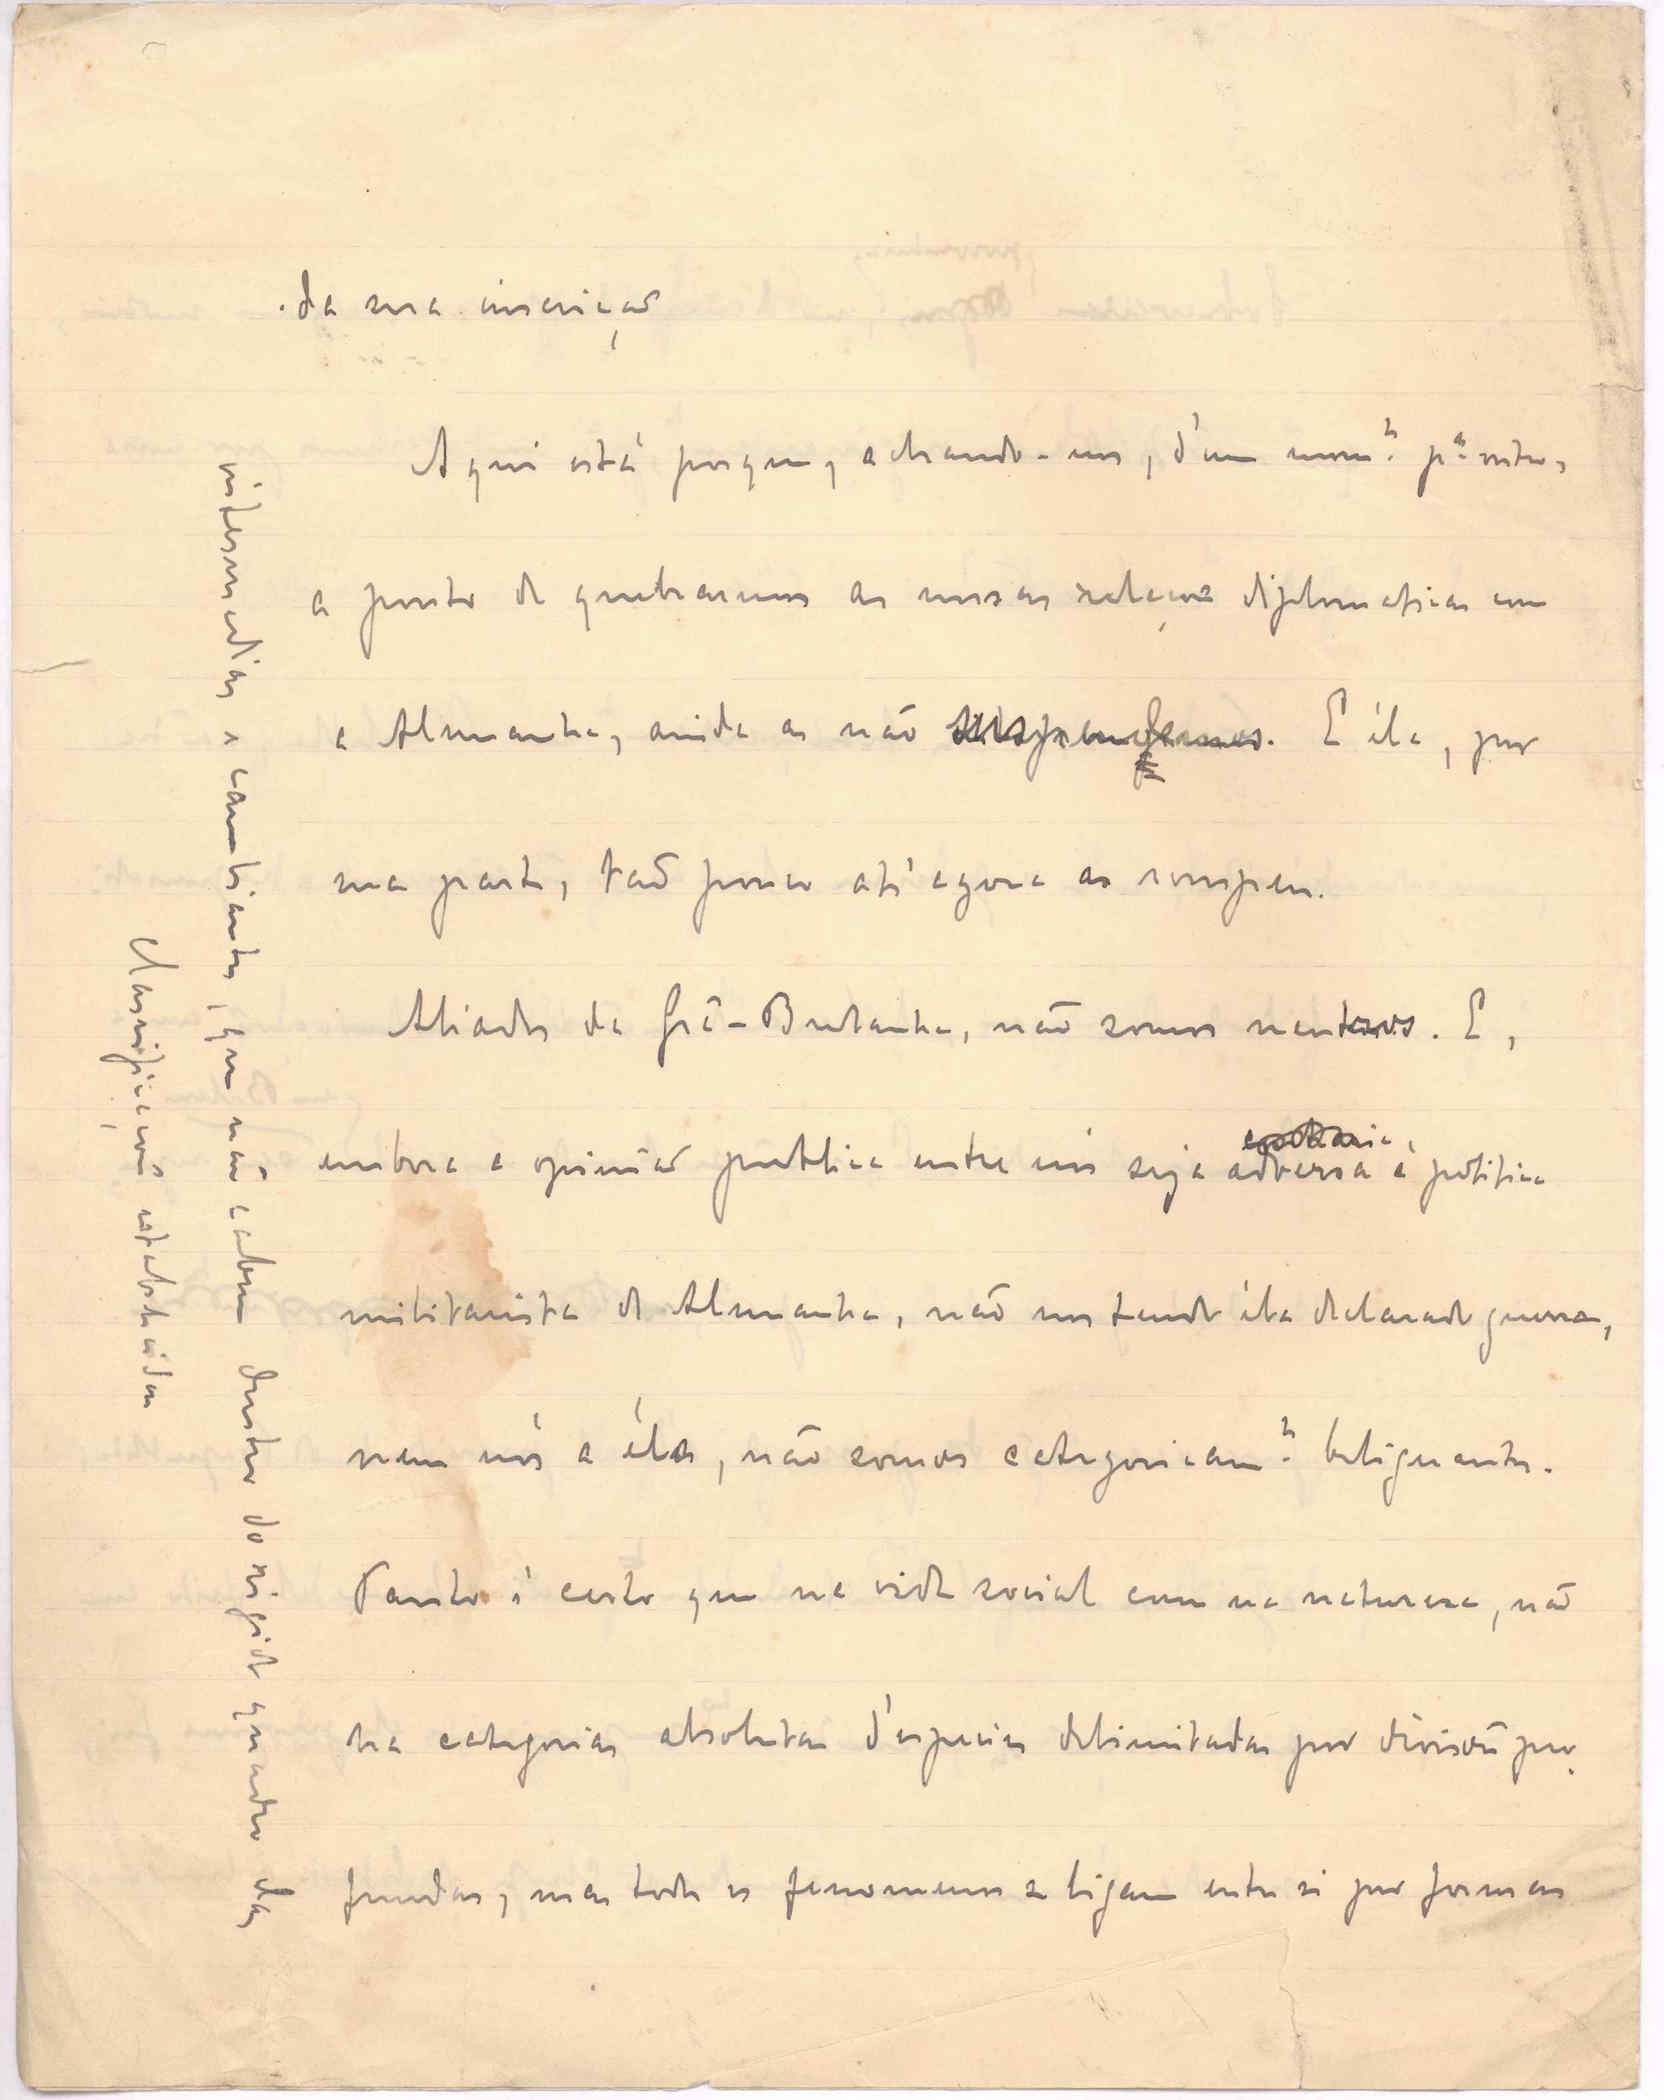 da sua inscrição
Aqui está porque, achando-nos, d'um mom.to p.a outro,
a ponto de quebrarmos as nossas relações diplomaticas com
a Alemanha, ainda as não suspendemos. E éla, por
sua parte, tão pouco até agora as rompeu.
Aliados da Grã-Bretanha, não somos neutros. E,
embora a opinião publica entre nós seja adversa á politica
contraria
militarista de Alemanha, não nos tendo éla declarado guerra,
nem nós a éla, não somos categoricam.te beligerantes.
Tanto é certo que na vida social como na natureza, não
ha categorias absolutas d'especies delimitadas por divisões pro-
fundas, mas todos os fenomenos se ligam entre si por formas
intermedias e cambiantes, que não cabem dentro do rigido quadro das
classificações estabelecidas